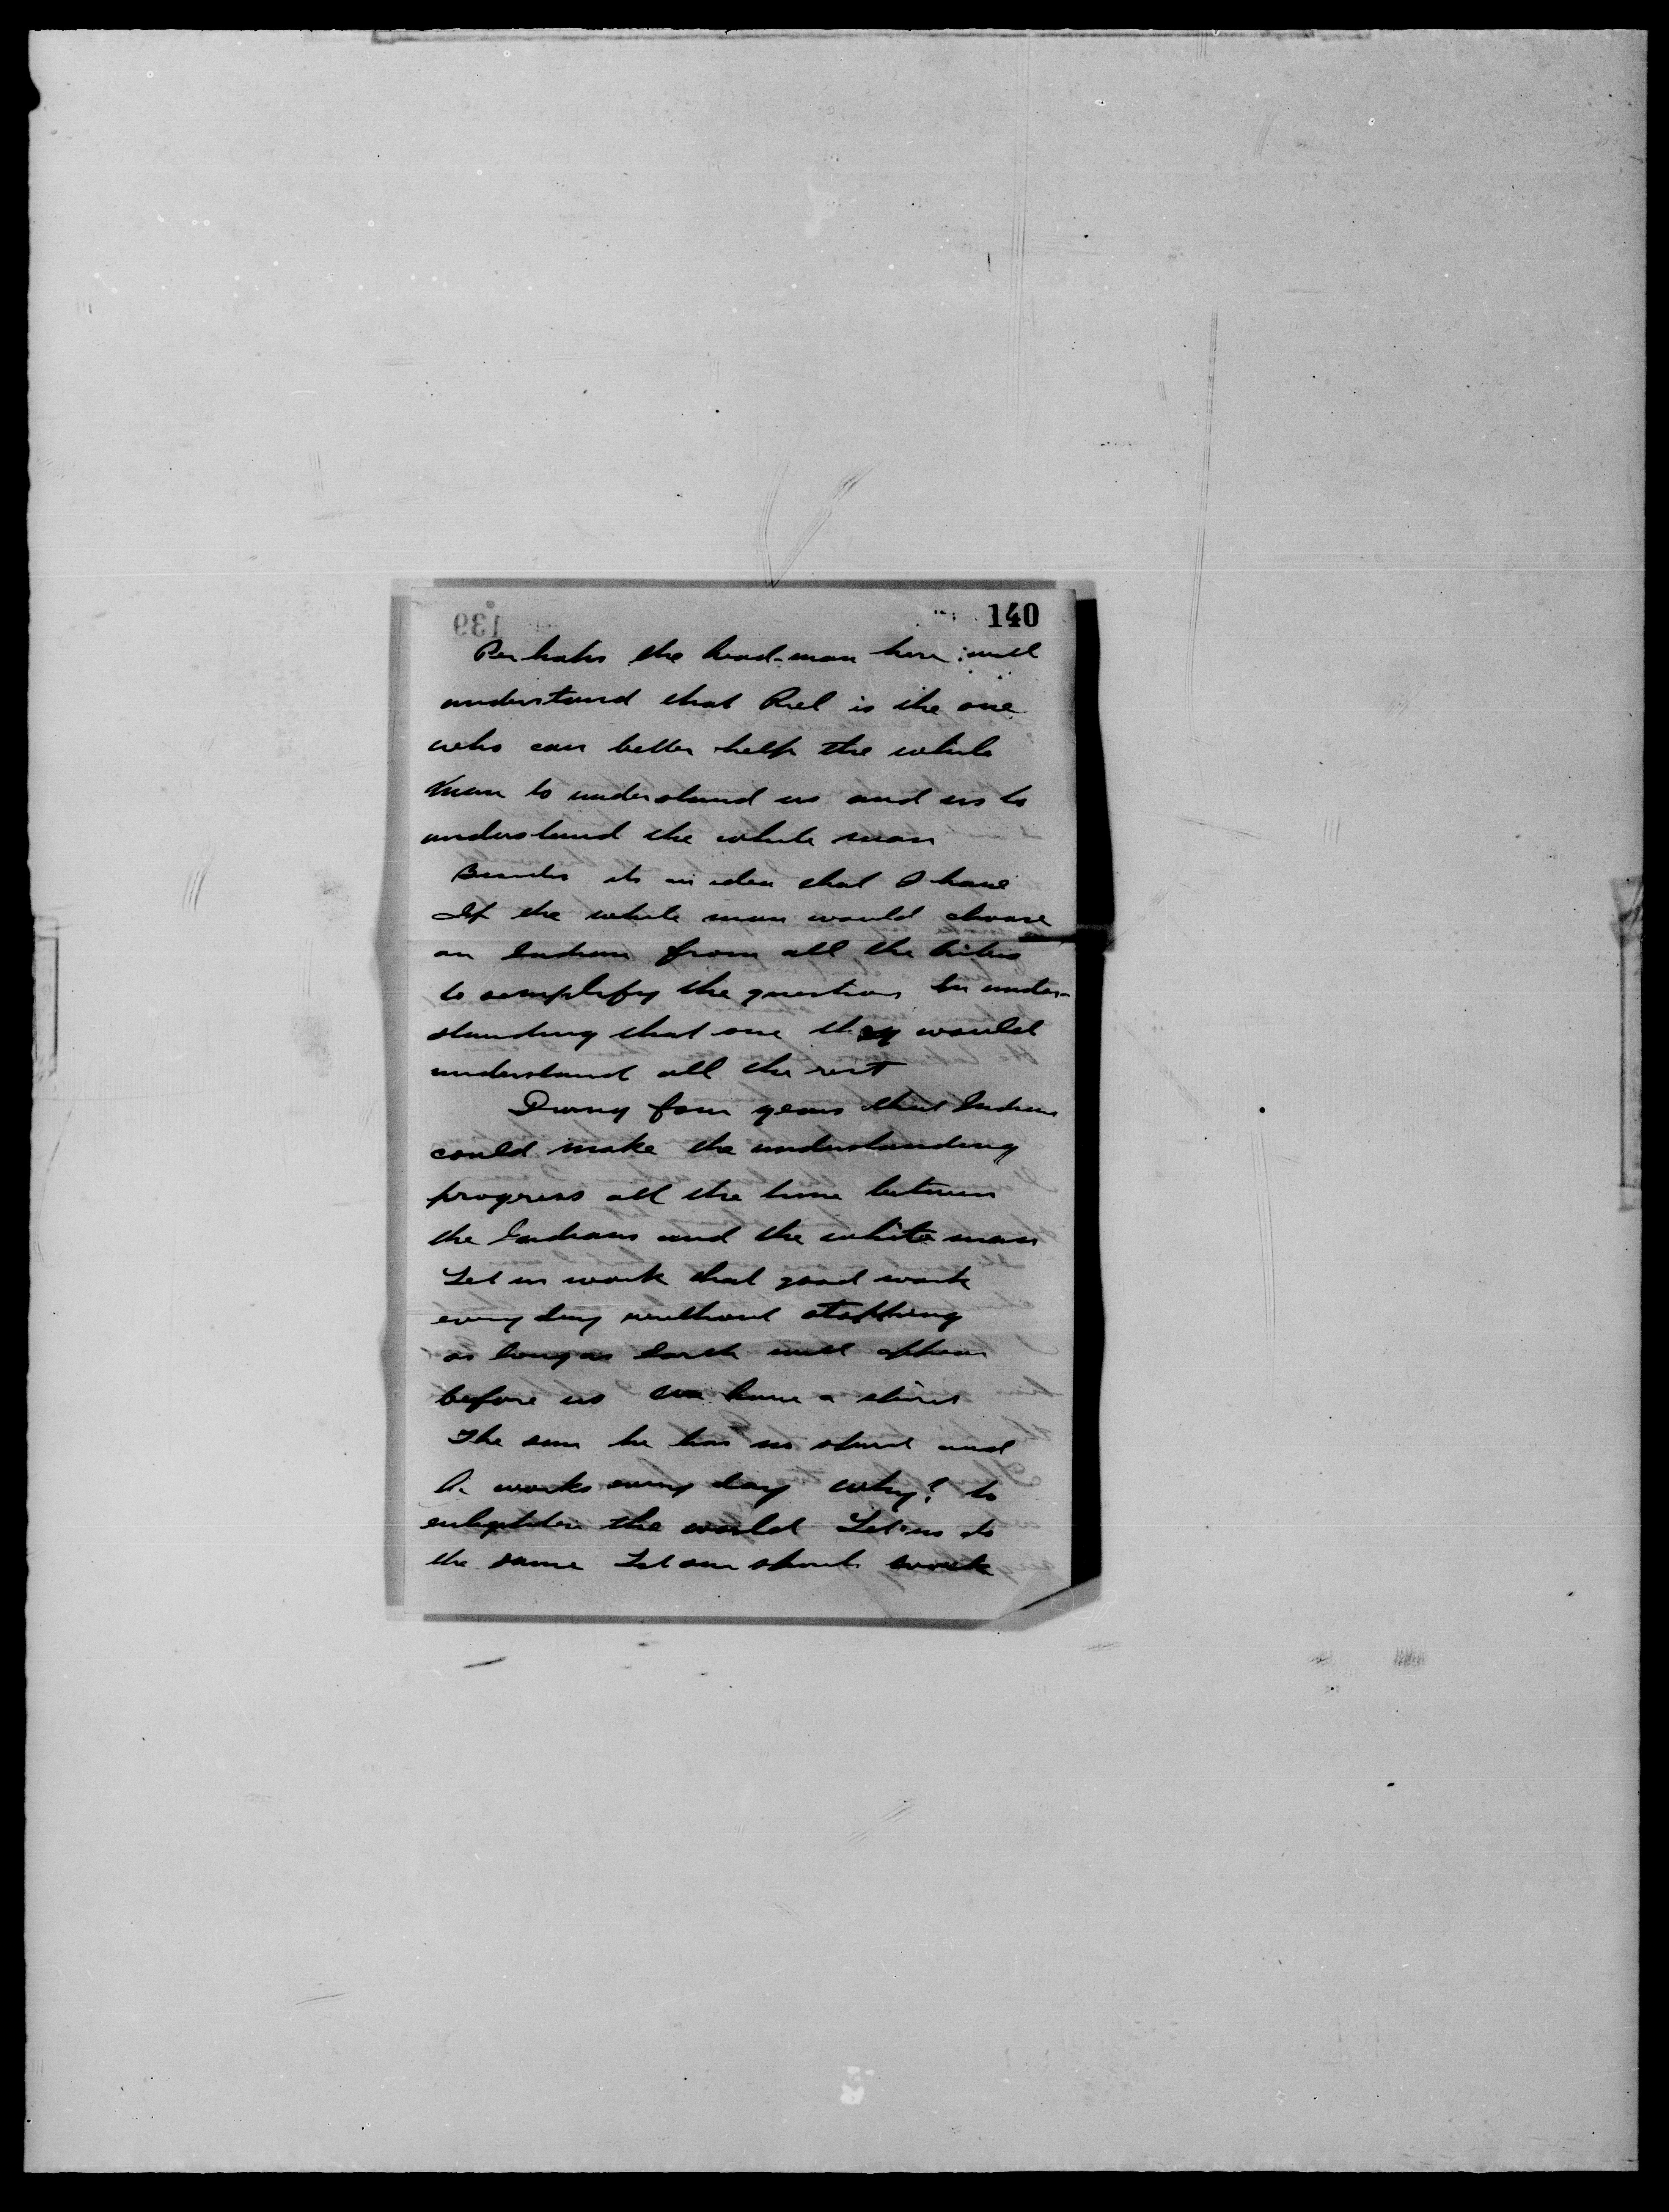 139 140
Perhaps the head-man here will
understand that Riel is the one
who can better help the white
man to understand us and us to
understand the white man
Besides its an idea that I have
If the white man would choose
an Indian from all the tribes
to semplefy the question In under-
standing that one they would
understand all the rest
During four years that Indian
could make the understanding
progress all the time between
the Indians and the white man
Let us work that good work
every day without stopping
as long as Earth will appear
before us we have a
The sun he has no and
he works every day why? to
enlighten the world Let us do
the same Let our work